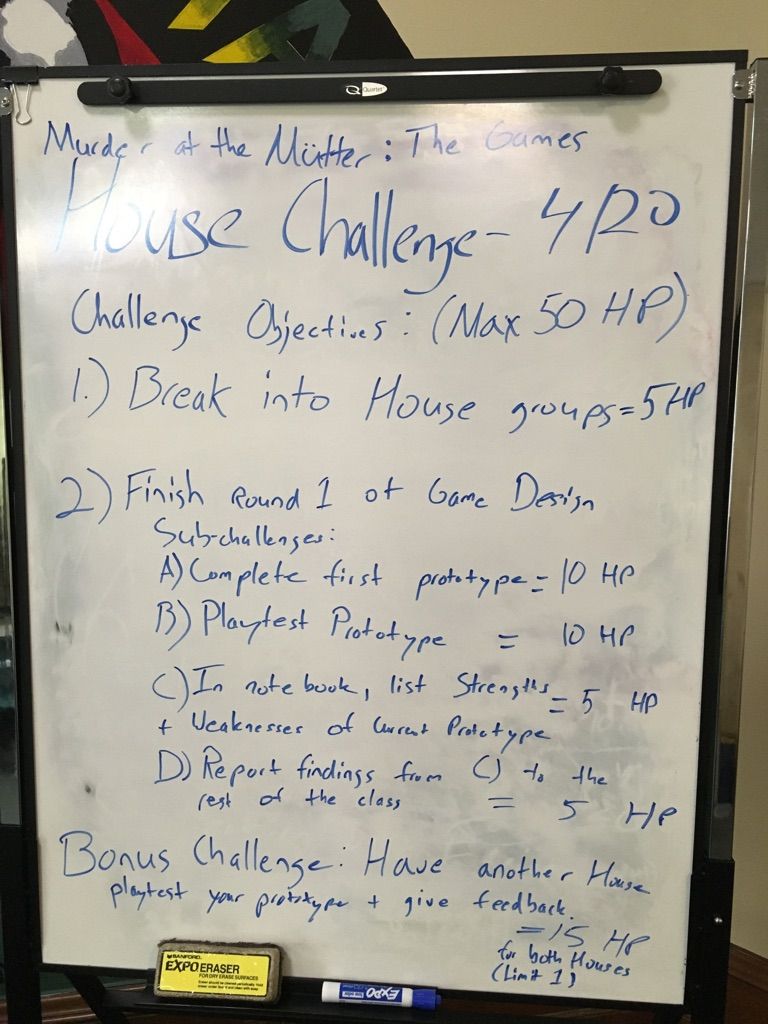 Quartet
Murder at the Mütter: The Games
House Challenge - 4/20
Challenge Objectives: (Max 50 HP)
1.) Break into House groups = 5 HP
2) Finish Round 1 of Game Design
Sub-challenges:
A) Complete first prototype = 10 HP
B) Playtest Prototype = 10 HP
C) In notebook, list Strengths = 5 HP
+ Weaknesses of Current Prototype
D) Report findings from C) to the
rest of the class = 5 HP
Bonus Challenge: Have another House
playtest your prototype + give feedback.
= 15 HP
for both Houses
(Limit 1)
SANFORD
EXPO ERASER
FOR DRY ERASE SURFACES
EXPO